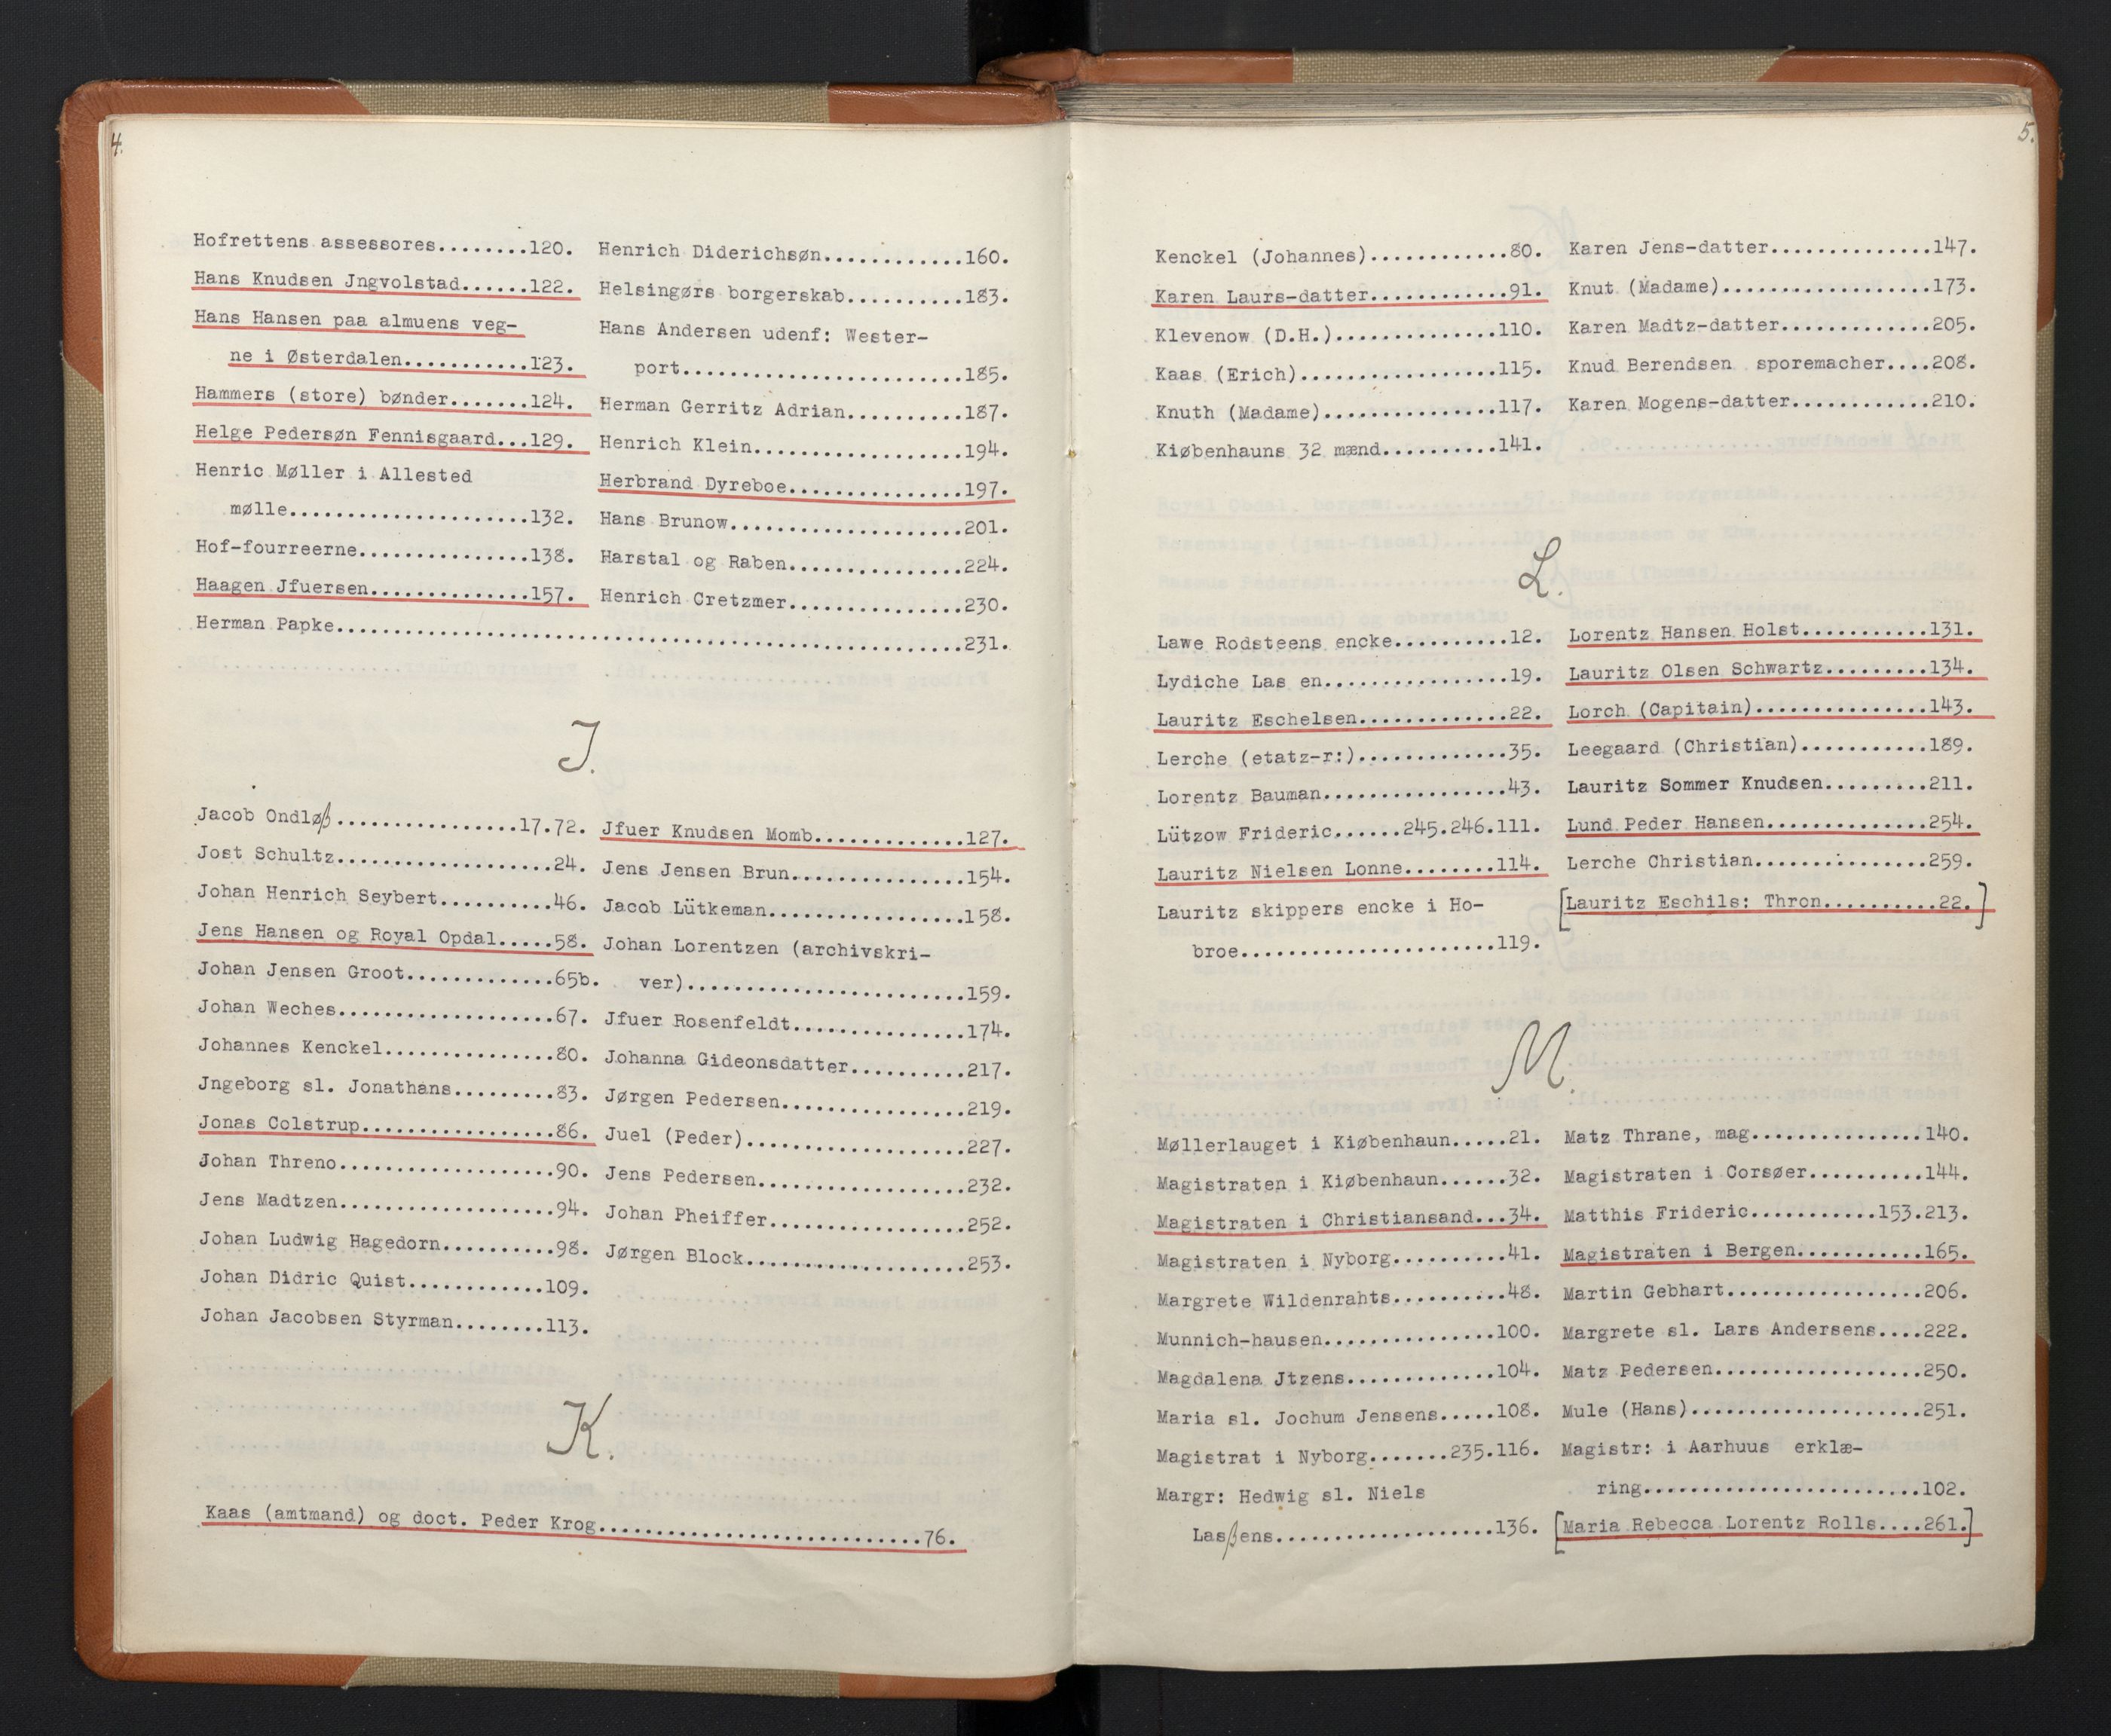 4.
Hofrettens assessores........120.
Hans Knudsen Jngvolstad......122.
Hans Hansen paa almuens veg-
ne i Østerdalen...........123.
Hammers (store) bønder.......124.
Helge Pedersøn Fennisgaard...129.
Henric Møller i Allested
mølle.....................132.
Hof-fourreerne...............138.
Haagen Jfuersen..............157.
Herman Papke.......................................................231.
Henrich Diderichsøn............160.
Helsingørs borgerskab..........183.
Hans Andersen udenf: Wester-
port.........................185.
Herman Gerritz Adrian..........187.
Henrich Klein..................194.
Herbrand Dyreboe...............197.
Hans Brunow....................201.
Harstal og Raben...............224.
Henrich Cretzmer...............230.
J.
Jacob Ondløß................17.72.
Jost Schultz...................24.
Johan Henrich Seybert..........46.
Jens Hansen og Royal Opdal.....58.
Johan Jensen Groot.............65b.
Johan Weches...................67.
Johannes Kenckel...............80.
Jngeborg sl. Jonathans.........83.
Jonas Colstrup.................86.
Johan Threno...................90.
Jens Madtzen...................94.
Johan Ludwig Hagedorn..........98.
Johan Didric Quist............109.
Johan Jacobsen Styrman........113.
Jfuer Knudsen Momb.............127.
Jens Jensen Brun...............154.
Jacob Lütkeman.................158.
Johan Lorentzen (archivskri-
ver)........................159.
Jfuer Rosenfeldt...............174.
Johanna Gideonsdatter..........217.
Jørgen Pedersen................219.
Juel (Peder)...................227.
Jens Pedersen..................232.
Johan Pheiffer.................252.
Jørgen Block...................253.
K.
Kaas (amtmand) og doct. Peder Krog............................76.
5.
Kenckel (Johannes)............80.
Karen Laurs-datter............91.
Klevenow (D.H.)..............110.
Kaas (Erich).................115.
Knuth (Madame)...............117.
Kiøbenhauns 32 mænd..........141.
Karen Jens-datter..............147.
Knut (Madame)..................173.
Karen Madtz-datter.............205.
Knud Berendsen sporemacher....208.
Karen Mogens-datter............210.
L.
Lawe Rodsteens encke..........12.
Lydiche Las en................19.
Lauritz Eschelsen.............22.
Lerche (etatz-r:).............35.
Lorentz Bauman................43.
Lützow Frideric......245.246.111.
Lauritz Nielsen Lonne........114.
Lauritz skippers encke i Ho-
broe......................119.
Lorentz Hansen Holst...........131.
Lauritz Olsen Schwartz.........134.
Lorch (Capitain)...............143.
Leegaard (Christian)...........189.
Lauritz Sommer Knudsen.........211.
Lund Peder Hansen..............254.
Lerche Christian...............259.
[Lauritz Eschils: Thron..........22.]
M.
Møllerlauget i Kiøbenhaun.....21.
Magistraten i Kiøbenhaun......32.
Magistraten i Christiansand...34.
Magistraten i Nyborg..........41.
Margrete Wildenrahts..........48.
Munnich-hausen...............100.
Magdalena Jtzens.............104.
Maria sl. Jochum Jensens.....108.
Magistrat i Nyborg.......235.116.
Margr: Hedwig sl. Niels
Lasßens...................136.
Matz Thrane, mag...............140.
Magistraten i Corsøer..........144.
Matthis Frideric...........153.213.
Magistraten i Bergen...........165.
Martin Gebhart.................206.
Margrete sl. Lars Andersens....222.
Matz Pedersen..................250.
Mule (Hans)....................251.
Magistr: i Aarhuus erklæ-
ring........................102.
[Maria Rebecca Lorentz Rolls....261.]